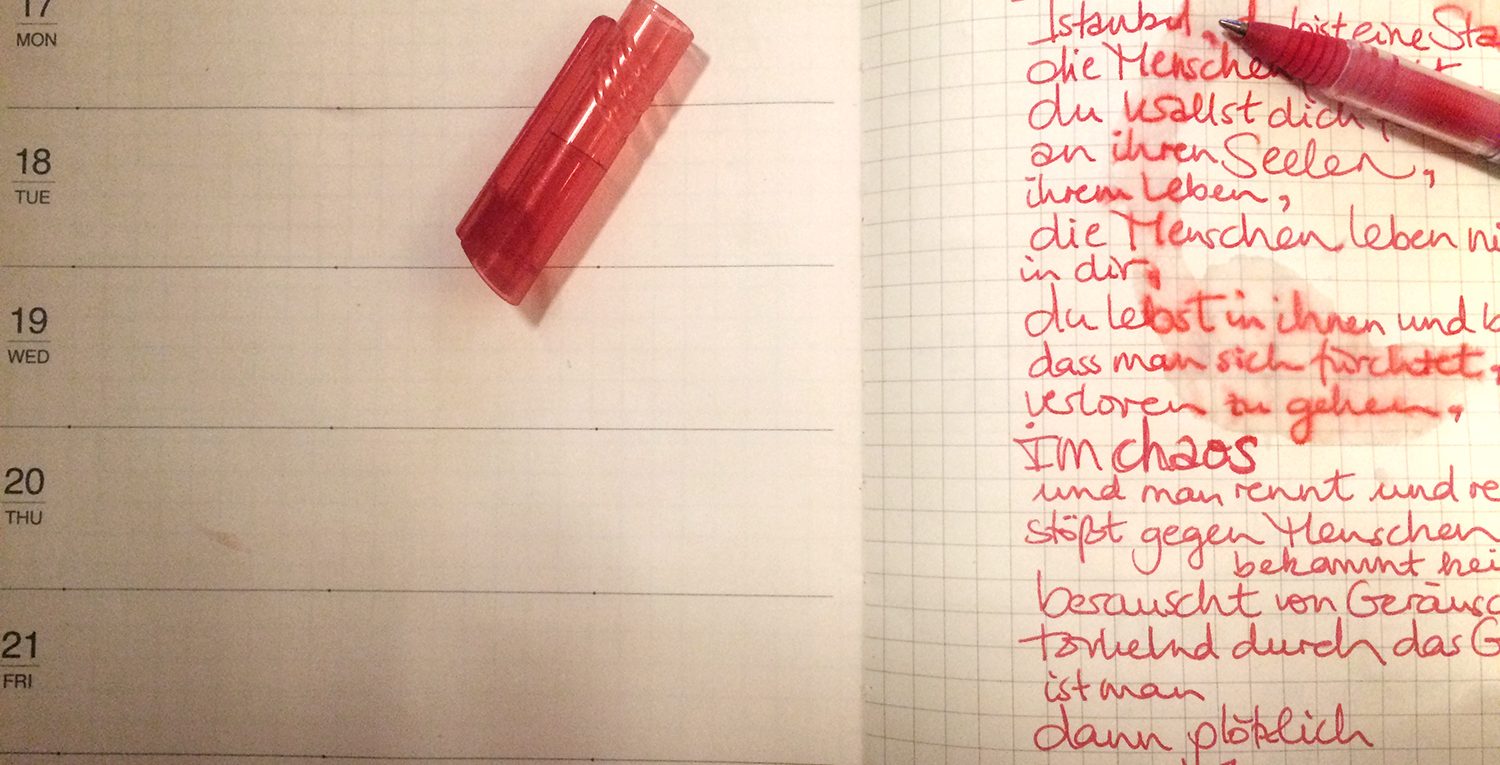 17
MON
18
TUE
19
WED
20
THU
21
FRI
Istanbul, bist eine Sta
die Menschen
du krallst dich,
an ihren Seelen,
ihrem Leben,
die Menschen leben ni
in dir,
du lebst in ihnen und
dass man sich fürchtet,
verloren zu gehen,
Im chaos
und man rennt und re
stößt gegen Menschen
bekommt kei
berauscht von Geräusc
torkelnd durch das G
ist man
dann plötzlich